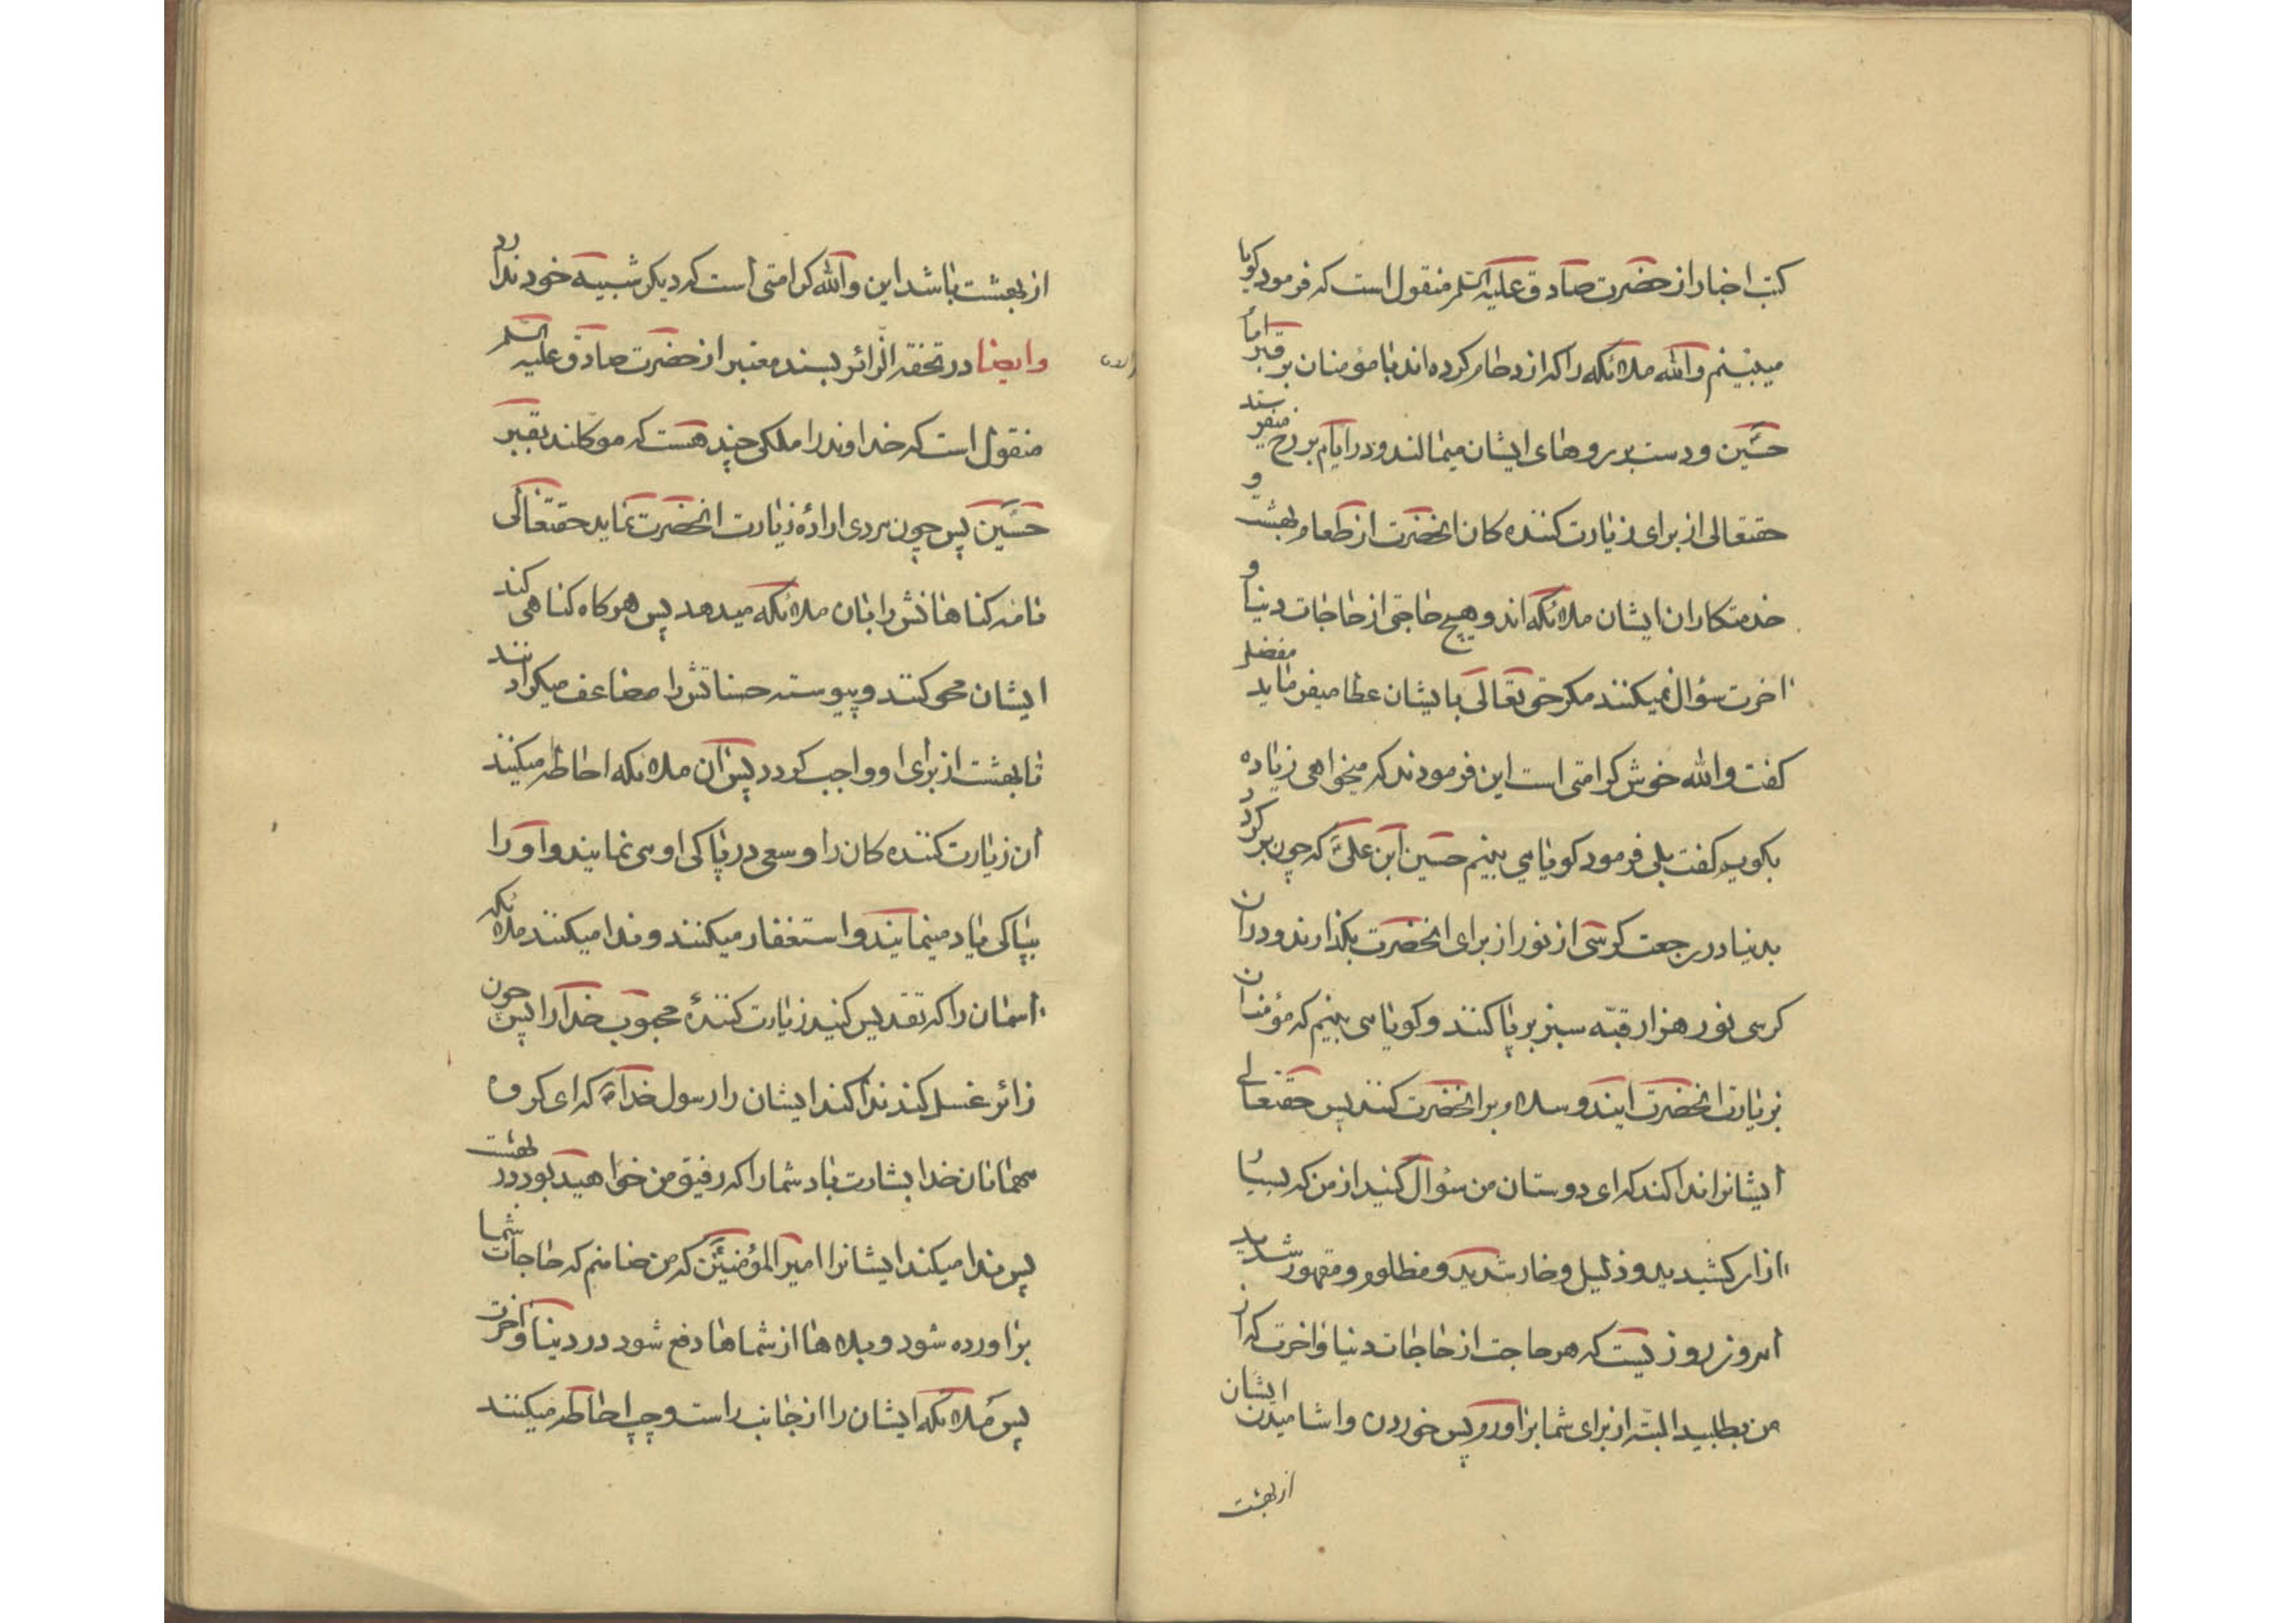 کتب اخبار از حضرت صادق علیه السلم منقول است که فرمود کویا
میبینم والله ملائکه را که ازدحام کرده اند با مؤمنان بر قبر امام
حسین و دست بر روهای ایشان میمالند و در ایام بر رخ
حقتعالی از برای زیارت کننده کان انحضرت از طعام بهشت و
خدمتکاران ایشان ملائکه اند و هیچ حاجتی از حاجات دنیا و
اخرت سؤال نمیکنند مکر حق تعالی بایشان عطا میفرماید مفضل
کفت والله خوش کرامتی است این فرمودند که میخواهی زیاده
بکویم کفت بلی فرمود کویا می بینم حسین ابن علی که چون بر کردد
بدنیا در رجعت کرسی از نور از برای انحضرت بکذارند و در ان
کرسی نور هزار قبّه سبز بر پا کنند و کویا می بینم که مؤمنان
بزیارت انحضرت ایند و سلام بر انحضرت کنند پس حقتعالی
ایشانرا ندا کند که ای دوستان من سؤال کنید از من که بسیا
ازار کشیدید و ذلیل و خار شدید و مظلوم و مقهور شدید
امروز روزیست که هر حاجت از حاجات دنیا و اخرت که از
من بطلبید البته از برای شما بر اورم پس خوردن و اشامیدن ایشان
از بهشت
از بهشت باشد این والله کرامتی است که دیکر شبیه خود ندارد
وایضا در تحفة الزائر بسند معتبر از حضرت صادق علیه السلم
منقول است که خداوند را ملکی چند هست که موکلند بقبر
حسین پس چون مردی ارادهٔ زیارت انحضرت نماید حقتعالی
نامه کناهانش را بان ملائکه میدهد پس هر کاه کناهی کند
ایشان محو کنند و پیوسته حسناتش را مضاعف میکردانند
تا بهشت از برای او واجب کردد پس ان ملائکه احاطه میکنند
ان زیارت کننده کان را و سعی در پاکی او می نمایند و او را
بپاکی یاد مینمایند و استغفار میکنند و ندا میکنند ملائکه
اسمان را که تقدیس کنید زیارت کنندهٔ محبوب خدا را پس چون
زائر غسل کند ندا کند ایشان را رسول خدا که ای کروه
مهمانان خدا بشارت باد شما را که رفیق من خواهید بود در بهشت
پس ندا میکند ایشانرا امیرالمؤمنین که من ضامنم که حاجات شما
بر اورده شود و بلاها از شماها دفع شود در دنیا و اخرت
پس ملائکه ایشان را از جانب راست و چپ احاطه میکنند